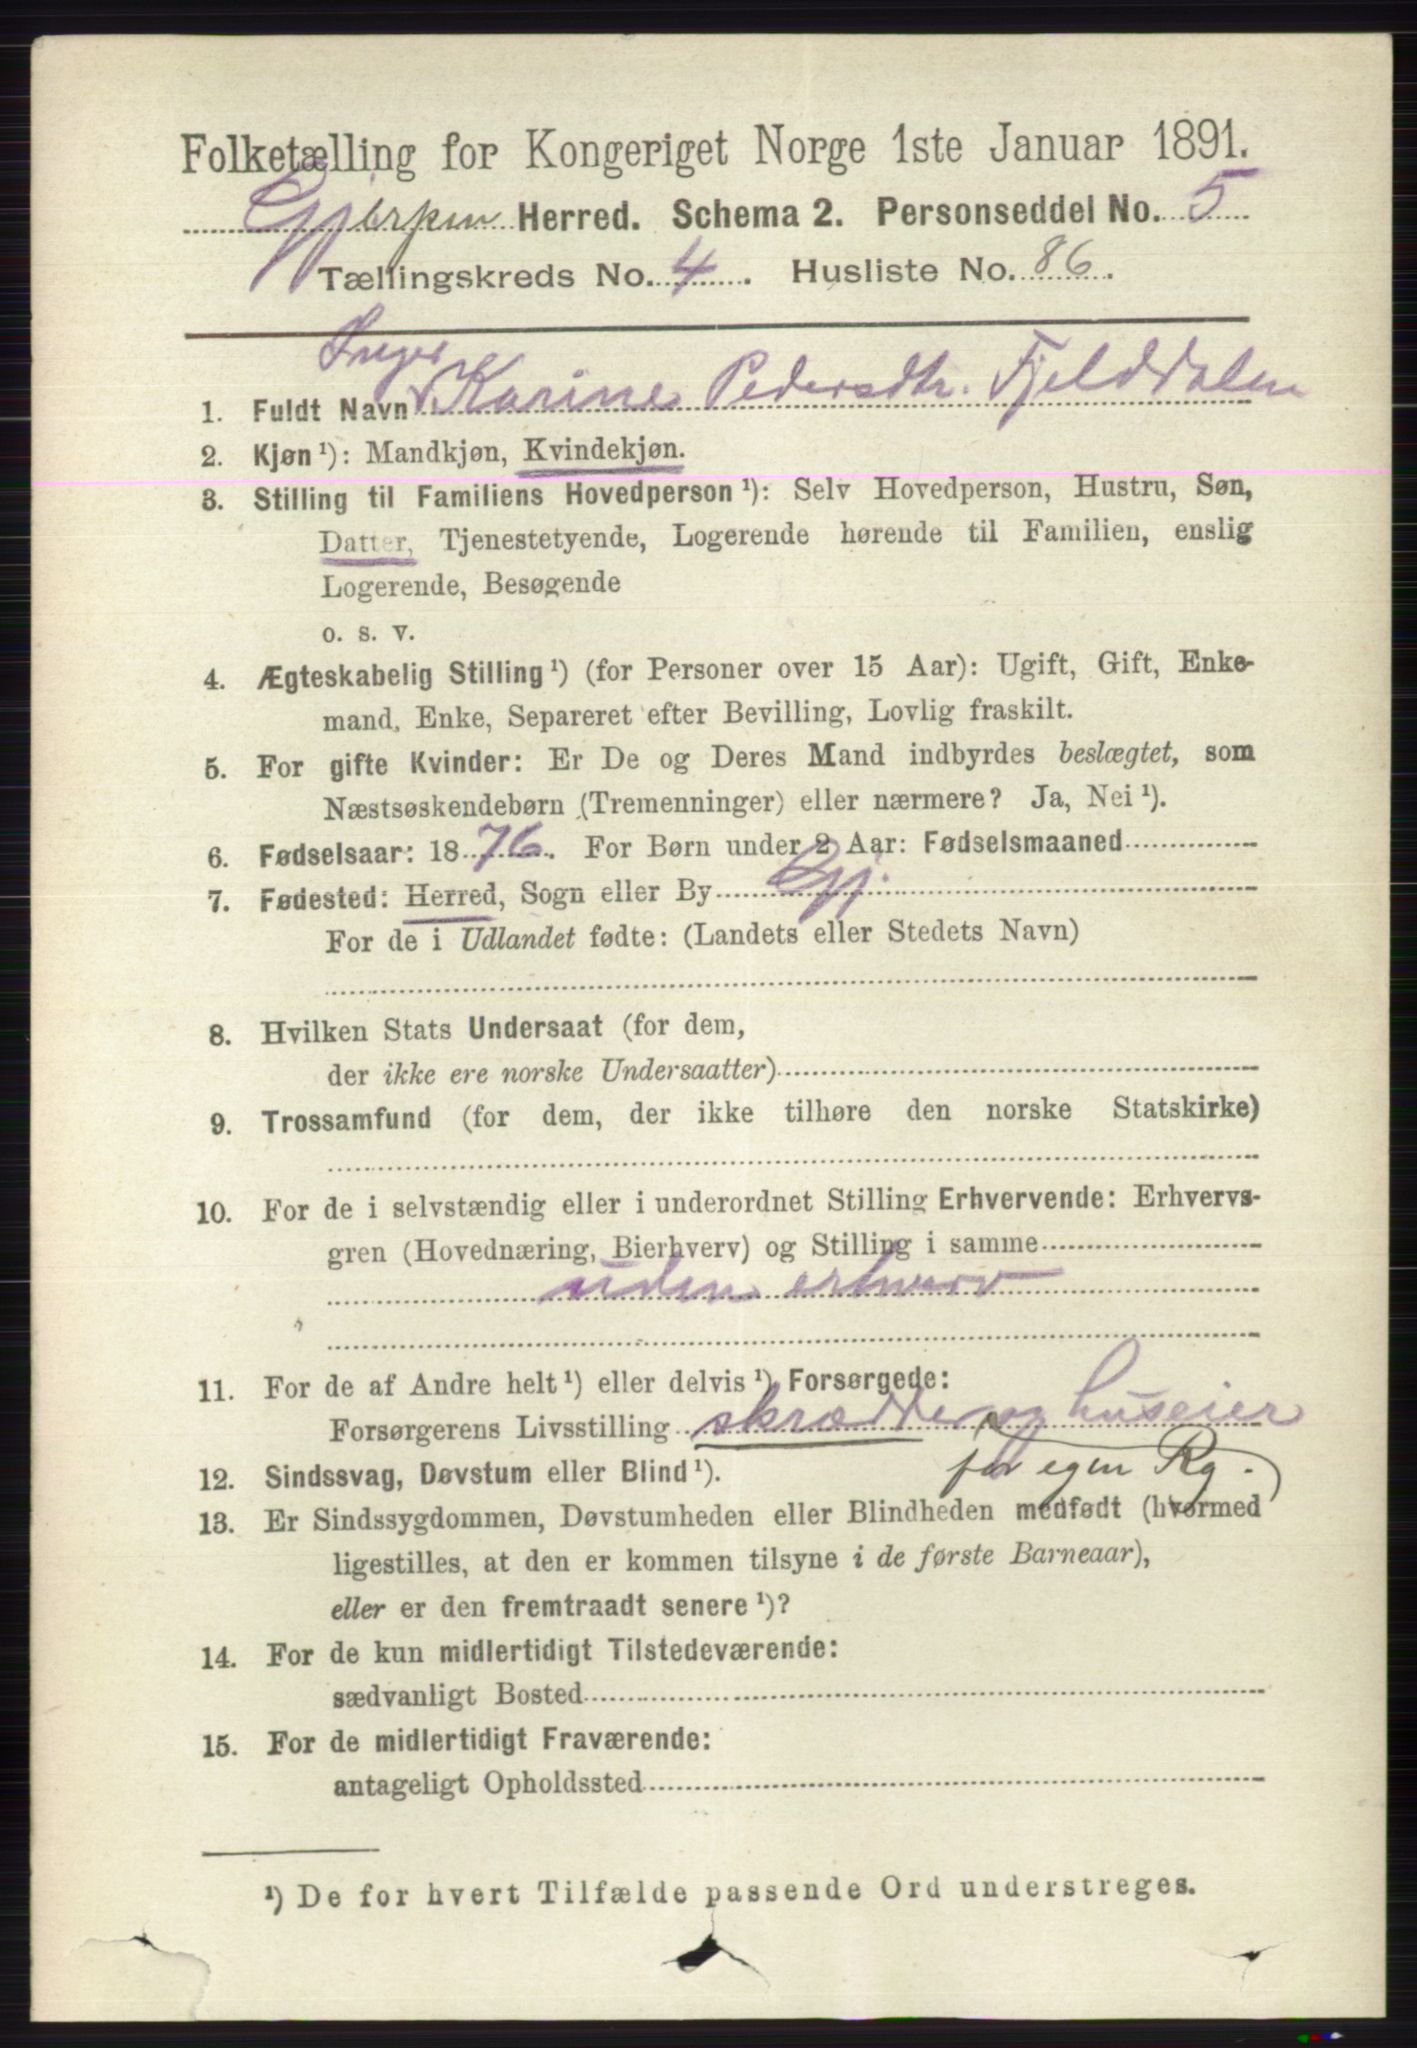 Folketælling for Kongeriget Norge 1ste Januar 1891.
Gjerpen Herred. Schema 2. Personseddel No. 5
Tællingskreds No. 4. Husliste No. 86.
Inger
1. Fuldt Navn Karine Pedersdtr. Fjelddalen
2. Kjøn ¹): Mandkjøn, Kvindekjøn.
3. Stilling til Familiens Hovedperson ¹): Selv Hovedperson, Hustru, Søn,
Datter, Tjenestetyende, Logerende hørende til Familien, enslig
Logerende, Besøgende
o. s. v.
4. Ægteskabelig Stilling ¹) (for Personer over 15 Aar): Ugift, Gift, Enke-
mand, Enke, Separeret efter Bevilling, Lovlig fraskilt.
5. For gifte Kvinder: Er De og Deres Mand indbyrdes beslægtet, som
Næstsøskendebørn (Tremenninger) eller nærmere? Ja, Nei ¹).
6. Fødselsaar: 1876. For Børn under 2 Aar: Fødselsmaaned
7. Fødested: Herred, Sogn eller By Gj.
For de i Udlandet fødte: (Landets eller Stedets Navn)
8. Hvilken Stats Undersaat (for dem,
der ikke ere norske Undersaatter)
9. Trossamfund (for dem, der ikke tilhøre den norske Statskirke)
10. For de i selvstændig eller i underordnet Stilling Erhvervende: Erhvervs-
gren (Hovednæring, Bierhverv) og Stilling i samme
uden erhverv
11. For de af Andre helt ¹) eller delvis ¹) Forsørgede:
Forsørgerens Livsstilling skrædder og huseier
for egen Rg.
12. Sindssvag, Døvstum eller Blind ¹).
13. Er Sindssygdommen, Døvstumheden eller Blindheden medfødt (hvormed
ligestilles, at den er kommen tilsyne i de første Barneaar),
eller er den fremtraadt senere ¹)?
14. For de kun midlertidigt Tilstedeværende:
sædvanligt Bosted
15. For de midlertidigt Fraværende:
antageligt Opholdssted
¹) De for hvert Tilfælde passende Ord understreges.